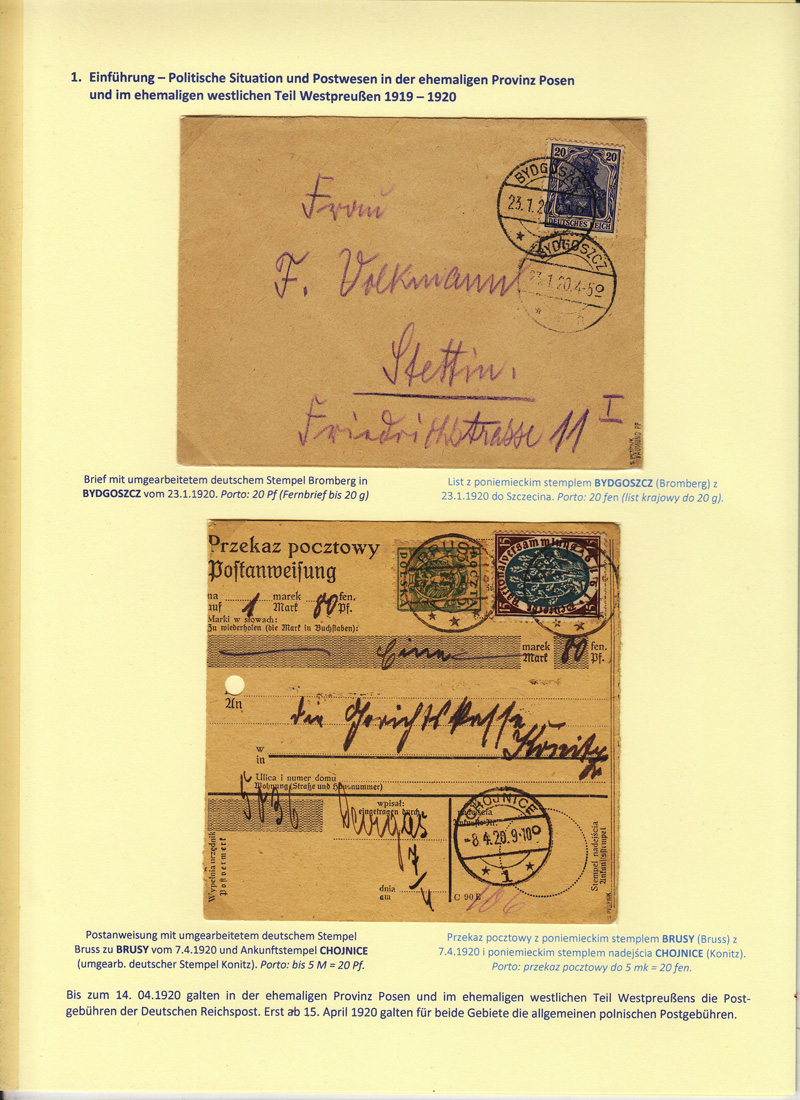 1. Einführung – Politische Situation und Postwesen in der ehemaligen Provinz Posen
und im ehemaligen westlichen Teil Westpreußen 1919 – 1920
20 20
DEUTSCHES REICH
BYDGOSZCZ
23.1.20
BYDGOSZCZ
23.1.20.4-5⁰
Frau
F. Volkmann
Stettin.
Friedrichstrasse 11 I
Brief mit umgearbeitetem deutschem Stempel Bromberg in
BYDGOSZCZ vom 23.1.1920. Porto: 20 Pf (Fernbrief bis 20 g)
List z poniemieckim stemplem BYDGOSZCZ (Bromberg) z
23.1.1920 do Szczecina. Porto: 20 fen (list krajowy do 20 g).
Przekaz pocztowy
Postanweisung
na marek fen.
auf 1 Mark 80 Pf.
Marki w słowach:
Zu wiederholen (die Mark in Buchstaben):
Eine marek Mark 80 fen. Pf.
POCZTA POLSKA
15 15
Nationalversammlung
An die Gerichtskasse
w
in Konitz
Ulica i numer domu
Wohnung (Straße und Hausnummer)
5836
wpisał:
eingetragen durch:
dnia
am 7/4
C 90
CHOJNICE
-8.4.20.9-10⁰
1
106
Wypełnia urzędnik
Postvermerk
Stempel nadejścia
Ankunftsstempel
Postanweisung mit umgearbeitetem deutschem Stempel
Bruss zu BRUSY vom 7.4.1920 und Ankunftstempel CHOJNICE
(umgearb. deutscher Stempel Konitz). Porto: bis 5 M = 20 Pf.
Przekaz pocztowy z poniemieckim stemplem BRUSY (Bruss) z
7.4.1920 i poniemieckim stemplem nadejścia CHOJNICE (Konitz).
Porto: przekaz pocztowy do 5 mk = 20 fen.
Bis zum 14. 04.1920 galten in der ehemaligen Provinz Posen und im ehemaligen westlichen Teil Westpreußens die Post-
gebühren der Deutschen Reichspost. Erst ab 15. April 1920 galten für beide Gebiete die allgemeinen polnischen Postgebühren.